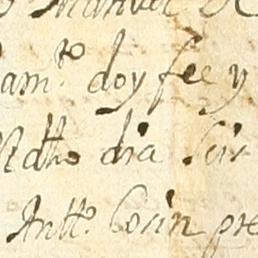 Manuel
am.to doy fee y
dho dia
Antto. Cosin pre